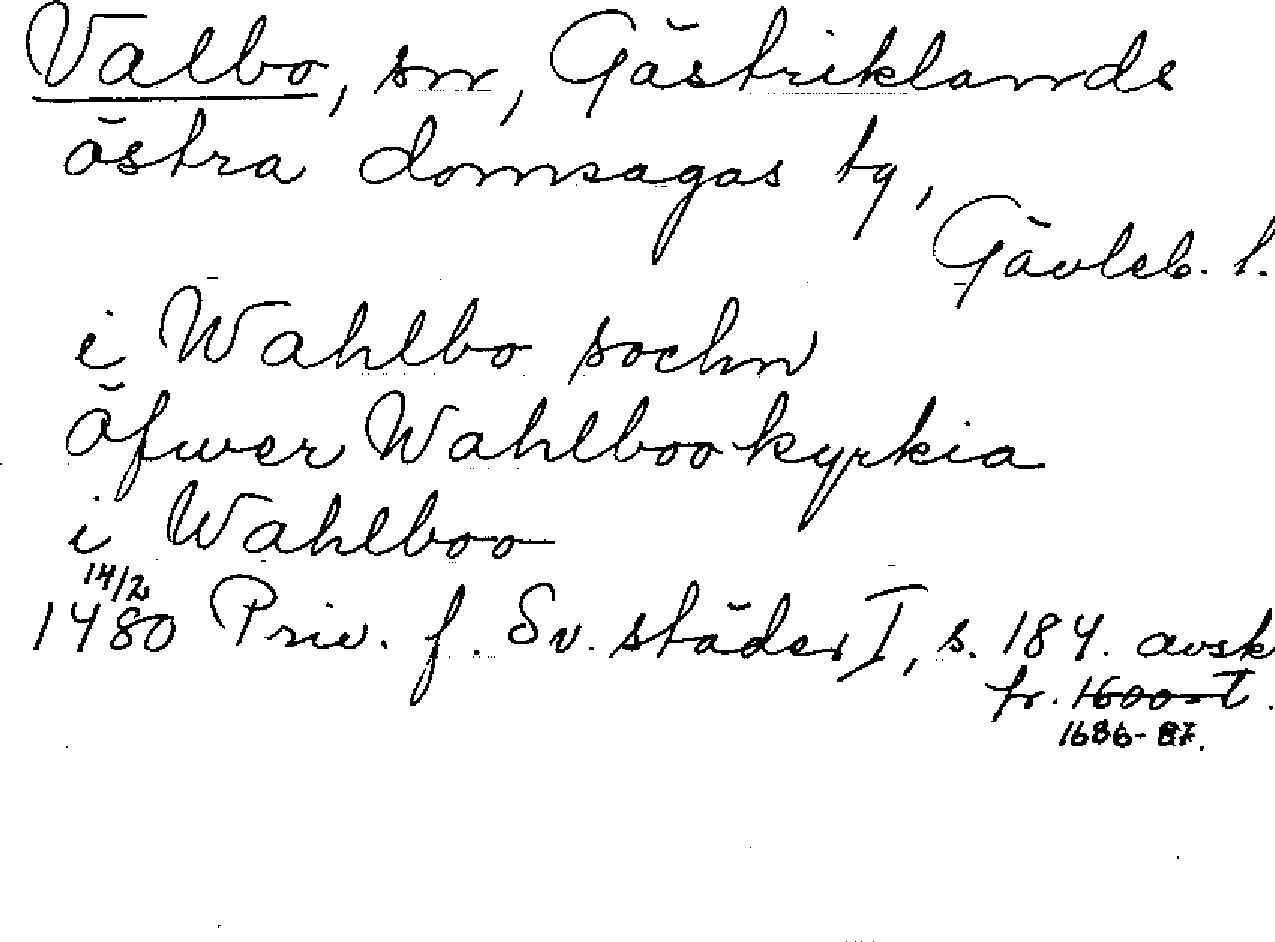 Valbo, sn, Gästriklands
östra domsagas tg,
Gävleb. l.
i Wahlbo sochn
öfwer Wahlboo kyrkia
i Wahlboo
14/2
1480 Priv. f. Sv. städer I, s. 184. avsk
fr. 1600-t.
1686-87.